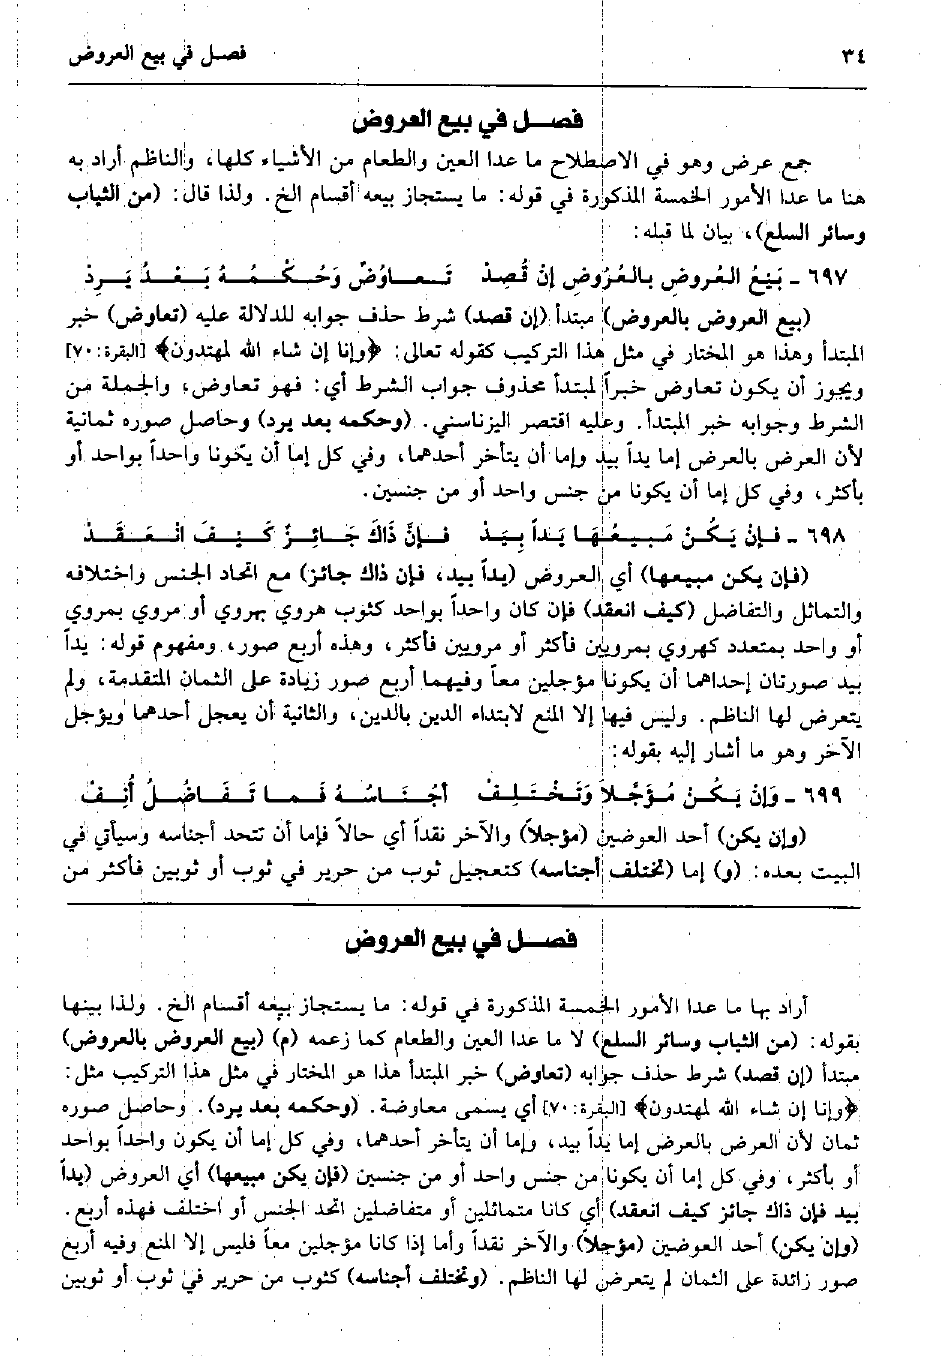 ٣٤
فصل في بيع العروض
فصل في بيع العروض
جمع عرض وهو في الاصطلاح ما عدا العين والطعام من الأشياء كلها، والناظم أراد به
هنا ما عدا الأمور الخمسة المذكورة في قوله: ما يستجاز بيعه أقسام الخ. ولذا قال: (من الثياب
وسائر السلع)، بيان لما قبله:
٦٩٧ ـ بَيْعُ العُروضِ بالعُرُوضِ إنْ قُصِدْ تَعاوُضٌ وَحُكْمُهُ بَعْدُ يَرِدْ
(بيع العروض بالعروض) مبتدأ (إن قصد) شرط حذف جوابه للدلالة عليه (تعاوض) خبر
المبتدأ وهذا هو المختار في مثل هذا التركيب كقوله تعالى: ﴿وإنا إن شاء الله لمهتدون﴾ [البقرة: ٧٠]
ويجوز أن يكون تعاوض خبراً لمبتدأ محذوف جواب الشرط أي: فهو تعاوض، والجملة من
الشرط وجوابه خبر المبتدأ. وعليه اقتصر اليزناسني. (وحكمه بعد يرد) وحاصل صوره ثمانية
لأن العرض بالعرض إما يداً بيد وإما أن يتأخر أحدهما، وفي كل إما أن يكونا واحداً بواحد أو
بأكثر، وفي كل إما أن يكونا من جنس واحد أو من جنسين.
٦٩٨ ـ فإنْ يَكُنْ مَبِيعُهَا يَداً بِيَدْ فإنَّ ذَاكَ جَائِزٌ كَيْفَ انْعَقَدْ
(فإن يكن مبيعها) أي العروض (يداً بيد، فإن ذاك جائز) مع اتحاد الجنس واختلافه
والتماثل والتفاضل (كيف انعقد) فإن كان واحداً بواحد كثوب هروي بهروي أو مروي بمروي
أو واحد بمتعدد كهروي بمرويين فأكثر أو مرويين فأكثر، وهذه أربع صور، ومفهوم قوله: يداً
بيد صورتان إحداهما أن يكونا مؤجلين معاً وفيهما أربع صور زيادة على الثمان المتقدمة، ولم
يتعرض لها الناظم. وليس فيها إلا المنع لابتداء الدين بالدين، والثانية أن يعجل أحدهما ويؤجل
الآخر وهو ما أشار إليه بقوله:
٦٩٩ ـ وَإنْ يَكُنْ مُؤَجَّلاً وَتَخْتَلِفْ أجْنَاسُهُ فَمَا تَفَاضُلٌ أُنِفْ
(وإن يكن) أحد العوضين (مؤجلاً) والآخر نقداً أي حالاً فإما أن تتحد أجناسه وسيأتي في
البيت بعده: (و) إما (تختلف أجناسه) كتعجيل ثوب من حرير في ثوب أو ثوبين فأكثر من
فصل في بيع العروض
أراد بها ما عدا الأمور الخمسة المذكورة في قوله: ما يستجاز بيعه أقسام الخ. ولذا بينها
بقوله: (من الثياب وسائر السلع) لا ما عدا العين والطعام كما زعمه (م) (بيع العروض بالعروض)
مبتدأ (إن قصد) شرط حذف جوابه (تعاوض) خبر المبتدأ هذا هو المختار في مثل هذا التركيب مثل:
﴿وإنا إن شاء الله لمهتدون﴾ [البقرة: ٧٠] أي يسمى معاوضة. (وحكمه بعد يرد). وحاصل صوره
ثمان لأن العرض بالعرض إما يداً بيد، وإما أن يتأخر أحدهما، وفي كل إما أن يكون واحداً بواحد
أو بأكثر، وفي كل إما أن يكونا من جنس واحد أو من جنسين (فإن يكن مبيعها) أي العروض (يداً
بيد فإن ذاك جائز كيف انعقد) أي كانا متماثلين أو متفاضلين اتحد الجنس أو اختلف فهذه أربع.
(وإن يكن) أحد العوضين (مؤجلاً) والآخر نقداً وأما إذا كانا مؤجلين معاً فليس إلا المنع وفيه أربع
صور زائدة على الثمان لم يتعرض لها الناظم. (وتختلف أجناسه) كثوب من حرير في ثوب أو ثوبين